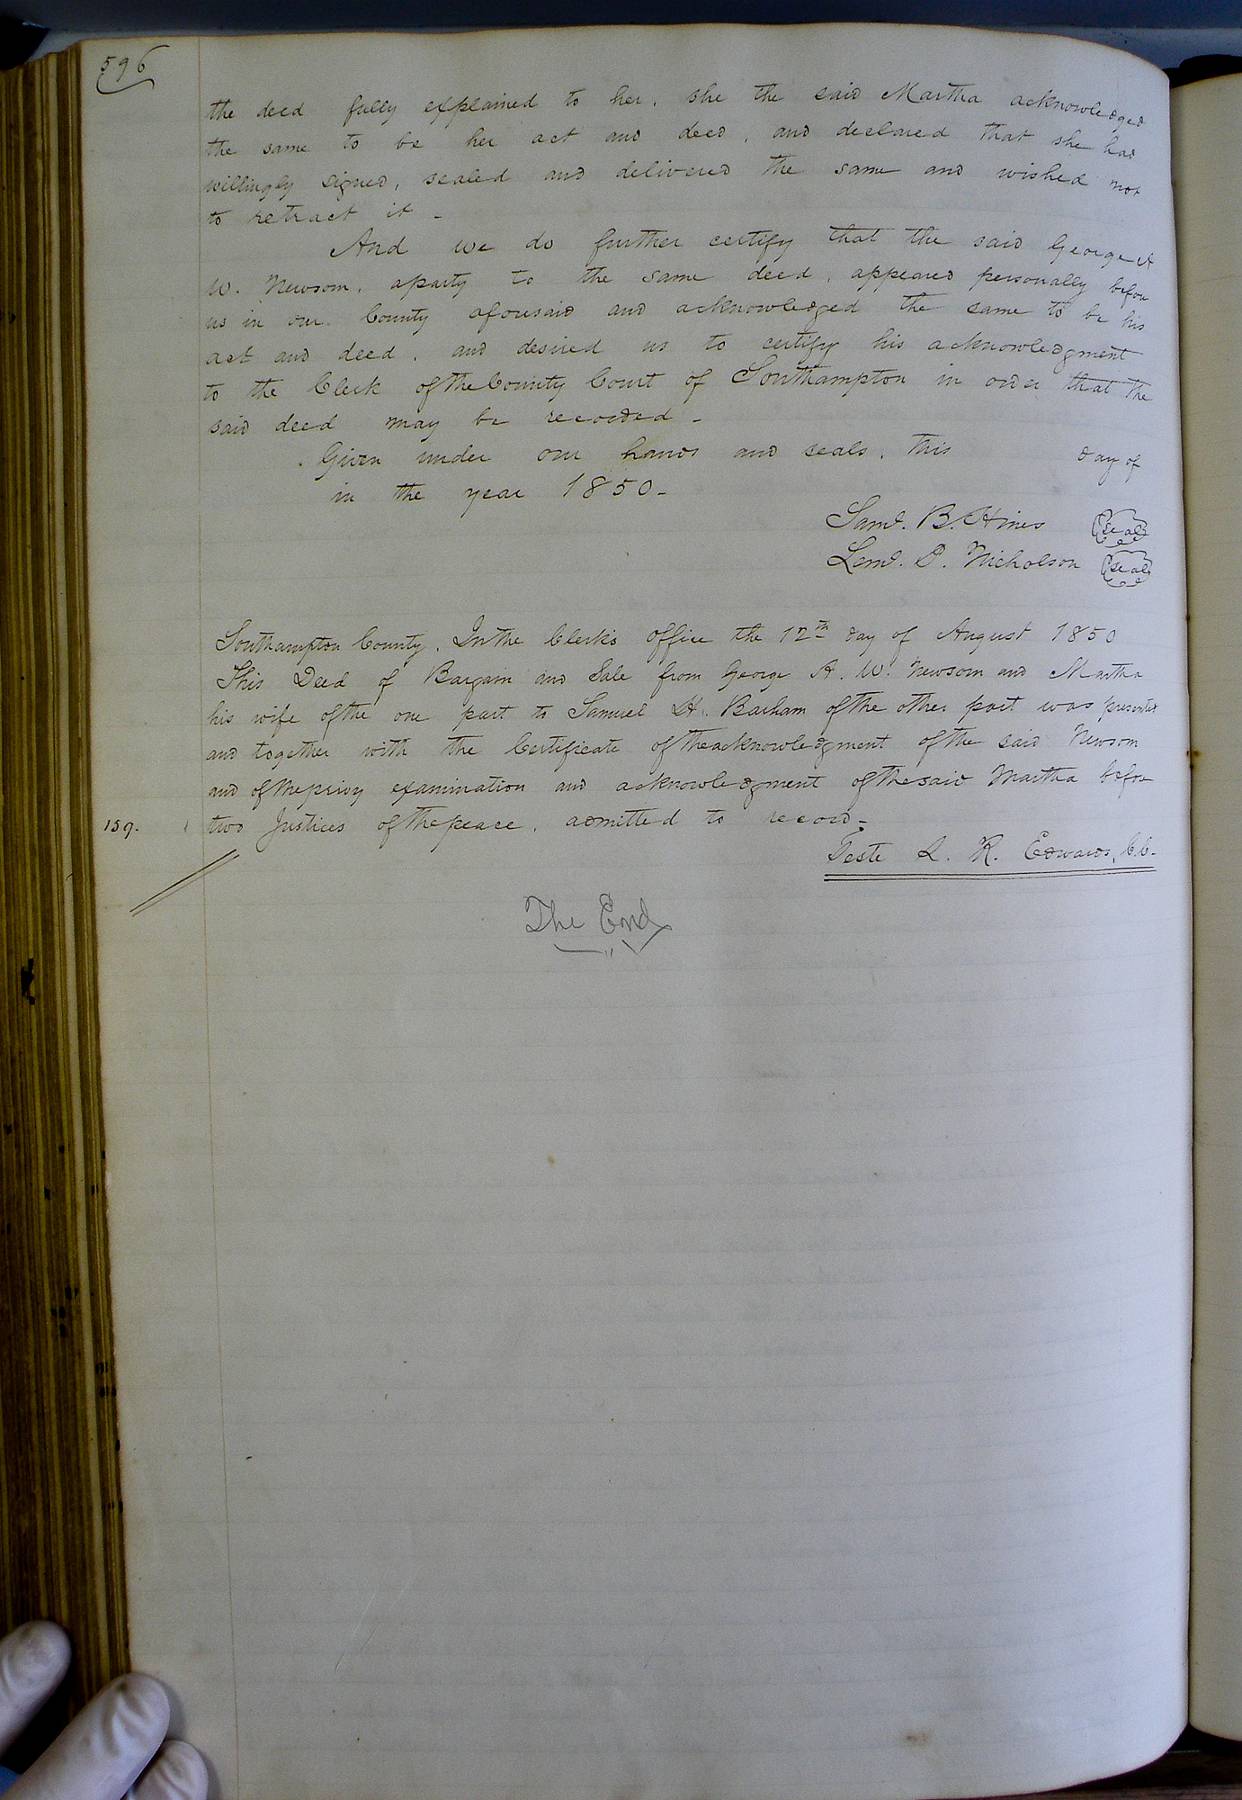 596
the deed fully explained to her, she the said Martha acknowledged
the same to be her act and deed, and declared that she had
willingly signed, sealed and delivered the same and wished not
to retract it -
And we do further certify that the said George A
W. Newsom, a party to the same deed, appeared personally before
us in our County aforesaid and acknowledged the same to be his
act and deed, and desired us to certify his acknowledgment
to the Clerk of the County Court of Southampton in order that the
said deed may be recorded -
Given under our hands and seals, this day of
in the year 1850 -
Saml. B. Hines (Seal)
Leml. P. Nicholson (Seal)
Southampton County. In the Clerk's Office the 12th day of August 1850
This Deed of Bargain and Sale from George A. W. Newsom and Martha
his wife of the one part to Samuel H. Barham of the other part was presented
and together with the Certificate of the acknowledgment of the said Newsom
and of the privy examination and acknowledgment of the said Martha before
159. two Justices of the peace, admitted to record -
Teste L. R. Edwards, C.C. -
The End